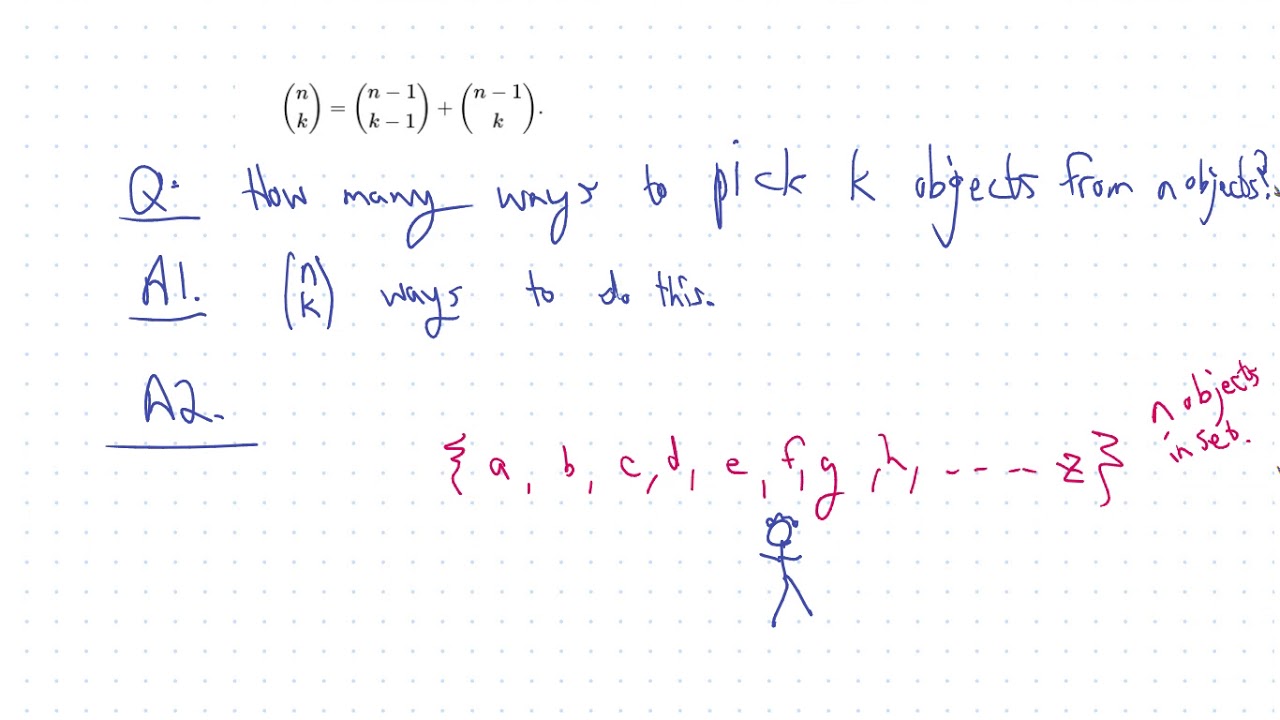 (n k) = (n − 1 k − 1) + (n − 1 k).
Q: How many ways to pick k objects from n objects?
A1. (n k) ways to do this.
A2.
n objects
in set.
{ a, b, c, d, e, f, g, h, ---- z}